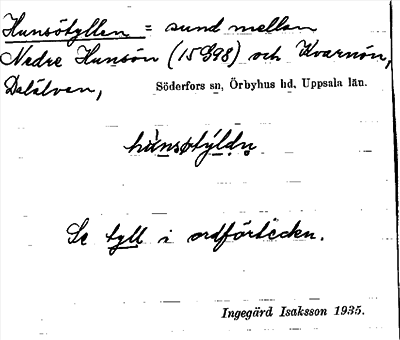 Hunsötyllen = sund mellan
Nedre Hunsön (15998) och Kvarnön,
Dalälven, Söderfors sn, Örbyhus hd, Uppsala län.
Se tyll i ordförteckn.
Ingegärd Isaksson 1935.